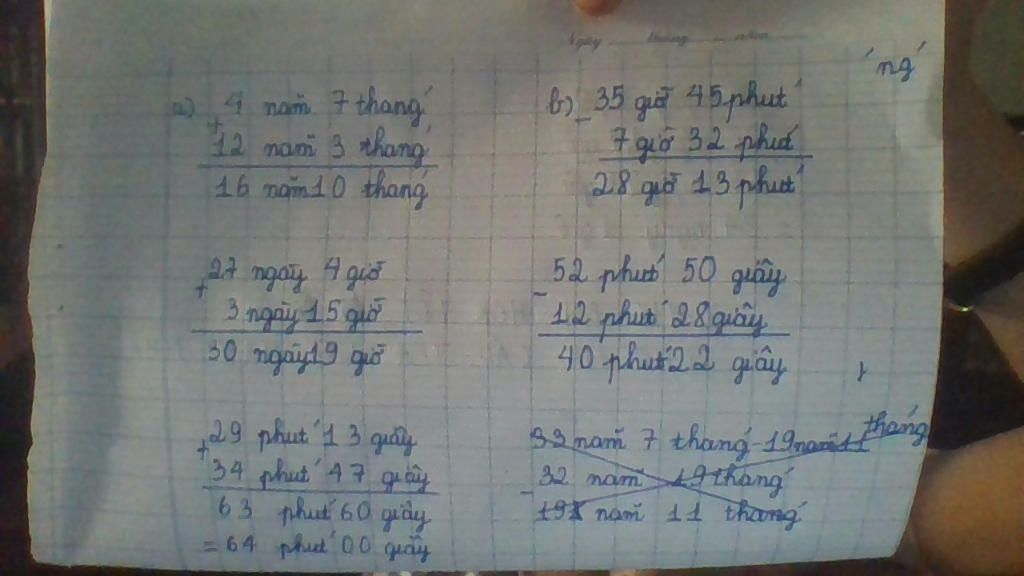 Ngày tháng năm
' ng'
a) 4 năm 7 tháng
+
12 năm 3 tháng
16 năm 10 tháng
27 ngày 4 giờ
+
3 ngày 15 giờ
30 ngày 19 giờ
29 phút 13 giây
+
34 phút 47 giây
63 phút 60 giây
= 64 phút 00 giây
b) 35 giờ 45 phút
-
7 giờ 32 phút
28 giờ 13 phút
52 phút 50 giây
-
12 phút 28 giây
40 phút 22 giây
33 năm 7 tháng - 19 năm 11 tháng
32 năm 19 tháng
-
19 năm 11 tháng